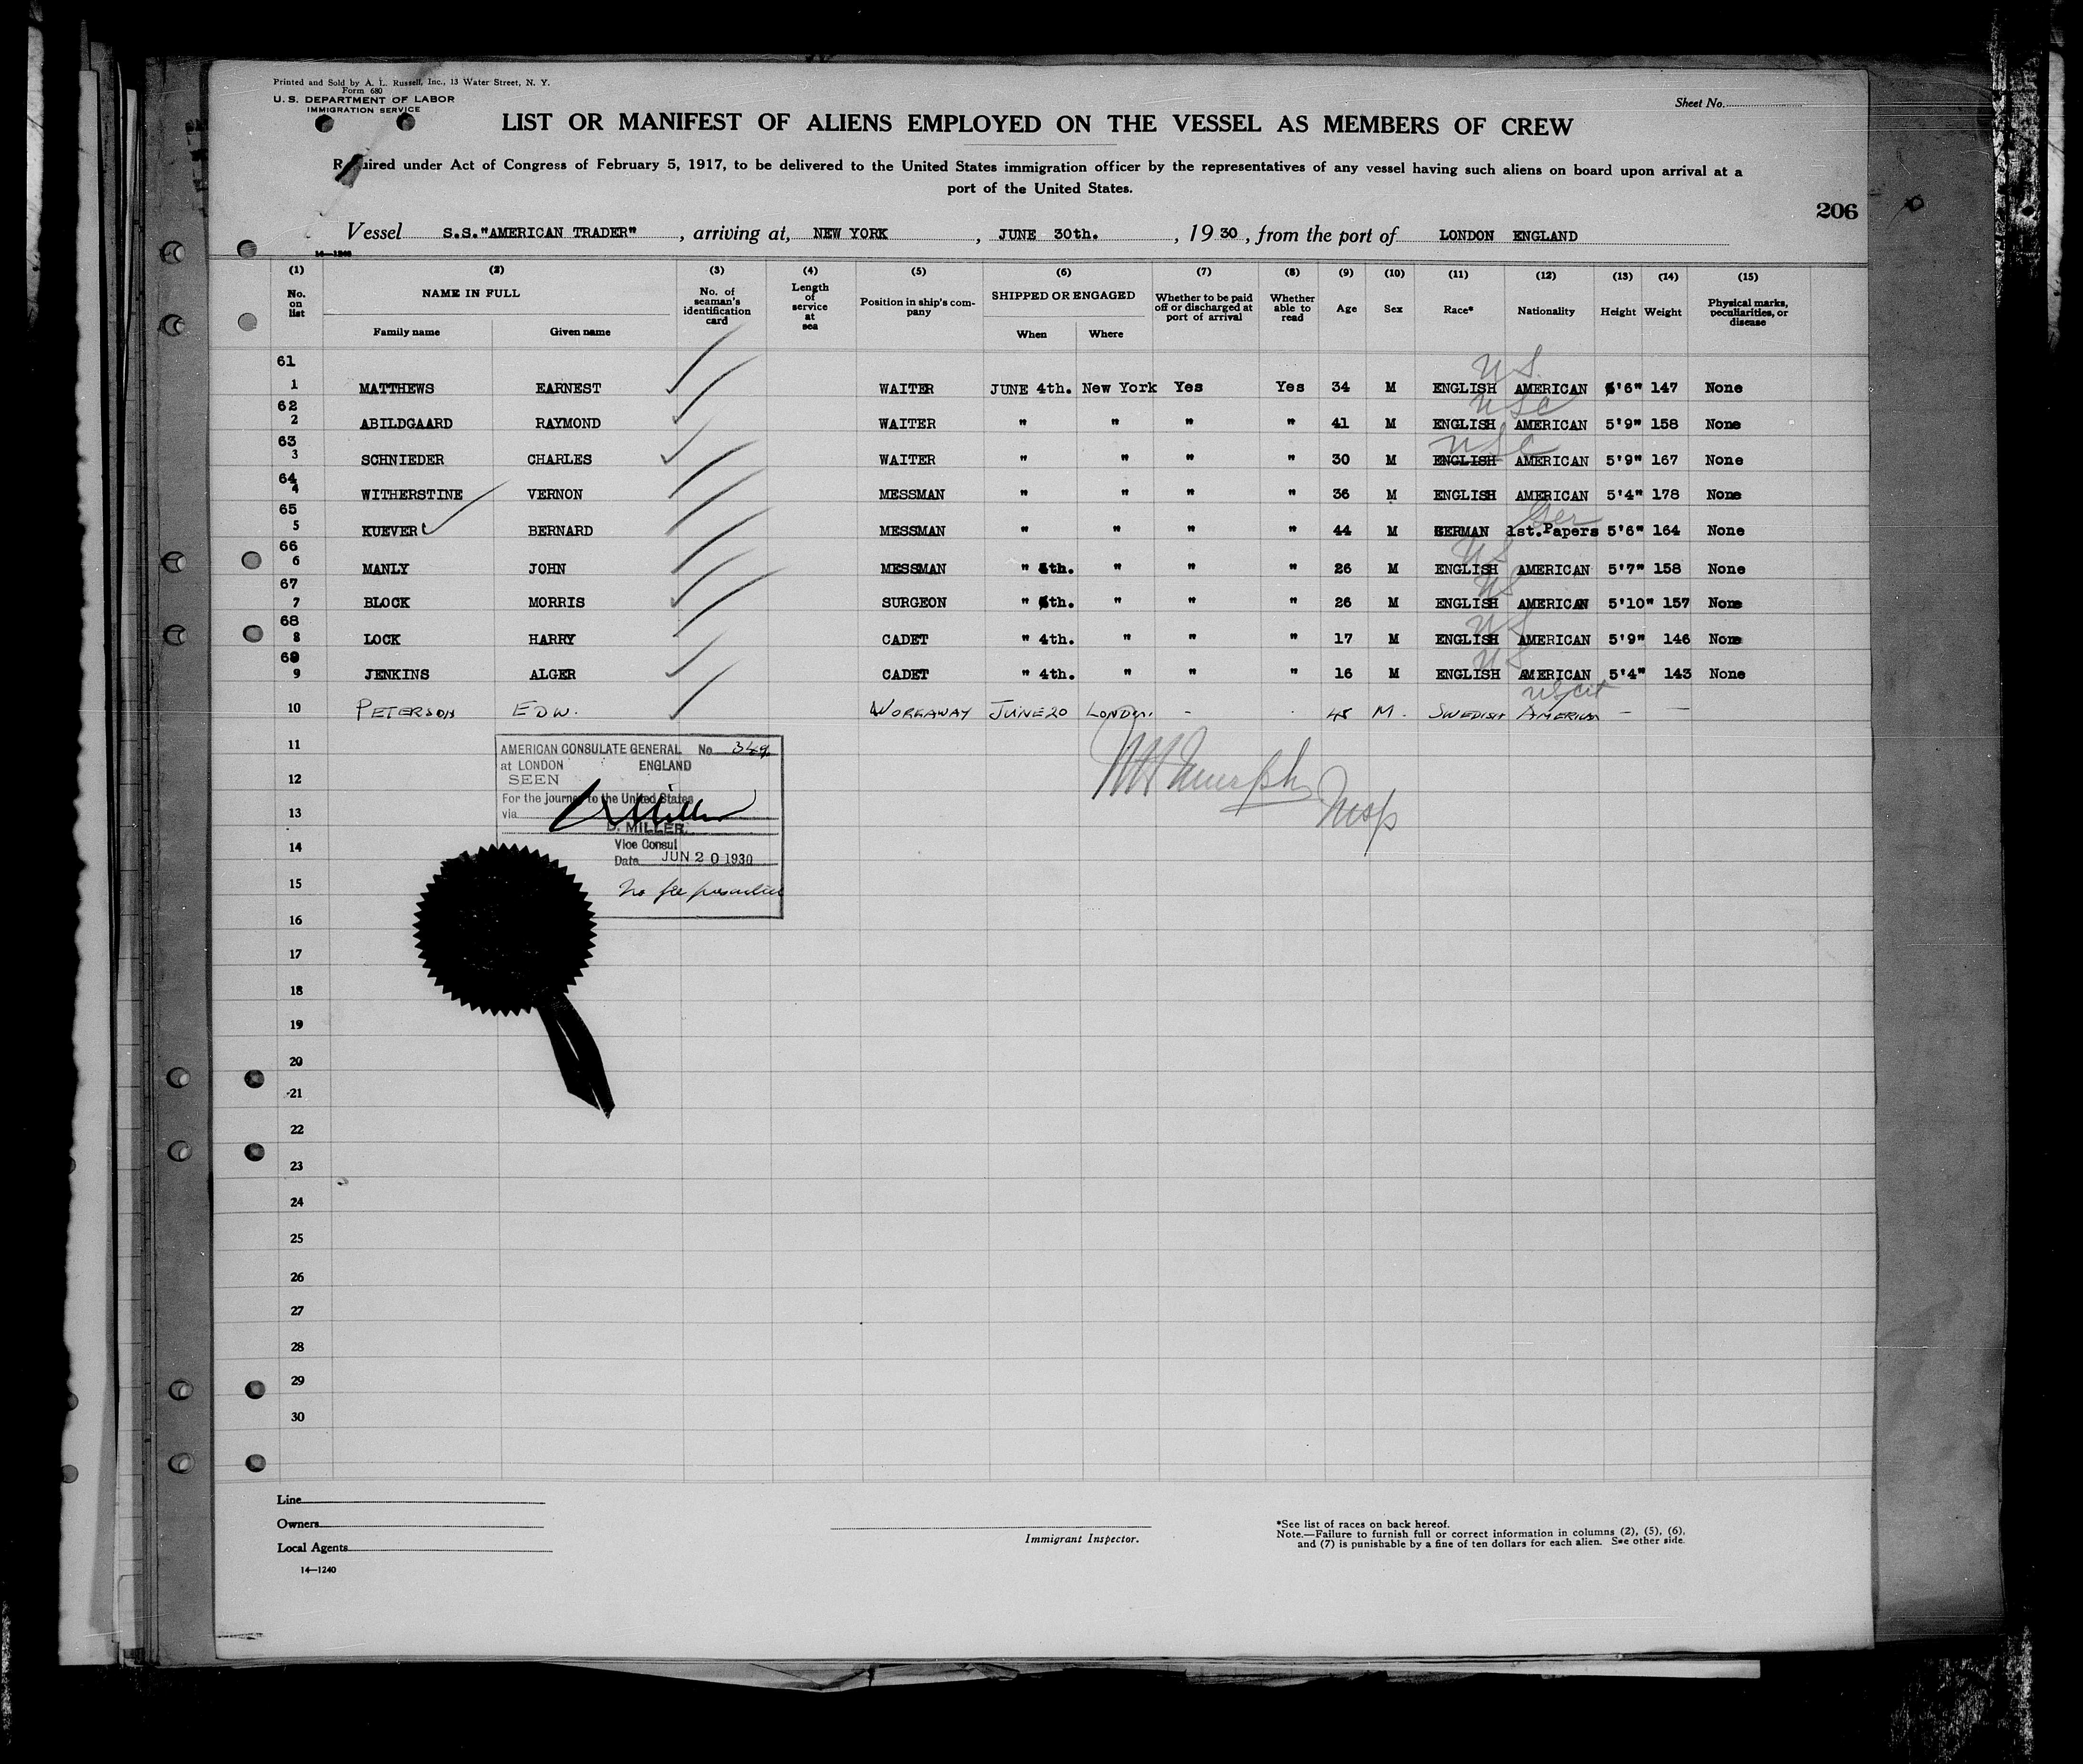 Printed and Sold by A. L. Russell, Inc., 13 Water Street, N. Y.
Form 680
U. S. DEPARTMENT OF LABOR
IMMIGRATION SERVICE
Sheet No.
LIST OR MANIFEST OF ALIENS EMPLOYED ON THE VESSEL AS MEMBERS OF CREW
Required under Act of Congress of February 5, 1917, to be delivered to the United States immigration officer by the representatives of any vessel having such aliens on board upon arrival at a
port of the United States.
206
Vessel S.S."AMERICAN TRADER", arriving at, NEW YORK, JUNE 30th., 1930, from the port of LONDON ENGLAND
14—1240
(1) (2) (3) (4) (5) (6) (7) (8) (9) (10) (11) (12) (13) (14) (15)
No. on list NAME IN FULL No. of seaman's identification card Length of service at sea Position in ship's company SHIPPED OR ENGAGED Whether to be paid off or discharged at port of arrival Whether able to read Age Sex Race* Nationality Height Weight Physical marks, peculiarities, or disease
Family name Given name When Where
61 U S.
1 MATTHEWS EARNEST WAITER JUNE 4th. New York Yes Yes 34 M ENGLISH AMERICAN 5'6" 147 None
62 U S C
2 ABILDGAARD RAYMOND WAITER " " " " 41 M ENGLISH AMERICAN 5'9" 158 None
63 U S C
3 SCHNIEDER CHARLES WAITER " " " " 30 M ENGLISH AMERICAN 5'9" 167 None
64
4 WITHERSTINE VERNON MESSMAN " " " " 36 M ENGLISH AMERICAN 5'4" 178 None
65 Ger
5 KUEVER BERNARD MESSMAN " " " " 44 M GERMAN 1st.Papers 5'6" 164 None
66 U S
6 MANLY JOHN MESSMAN " 4th. " " " 26 M ENGLISH AMERICAN 5'7" 158 None
67 U S
7 BLOCK MORRIS SURGEON " 5th. " " " 26 M ENGLISH AMERICAN 5'10" 157 None
68 U S
8 LOCK HARRY CADET " 4th. " " " 17 M ENGLISH AMERICAN 5'9" 146 None
69 U S
9 JENKINS ALGER CADET " 4th. " " " 16 M ENGLISH AMERICAN 5'4" 143 None
US Cit
10 PETERSON EDW. WORKAWAY JUNE 20 LONDON. - 45 M. SWEDISH AMERICAN - -
11
AMERICAN CONSULATE GENERAL No. 349
at LONDON ENGLAND
SEEN
12
For the journey to the United States
via
13
D. MILLER
Vice Consul
14
Date JUN 20 1930
15
No fee prescribed
Insp
16
17
18
19
20
21
22
23
24
25
26
27
28
29
30
Line
Owners
Local Agents
14—1240
Immigrant Inspector.
*See list of races on back hereof.
Note.—Failure to furnish full or correct information in columns (2), (5), (6),
and (7) is punishable by a fine of ten dollars for each alien. See other side.